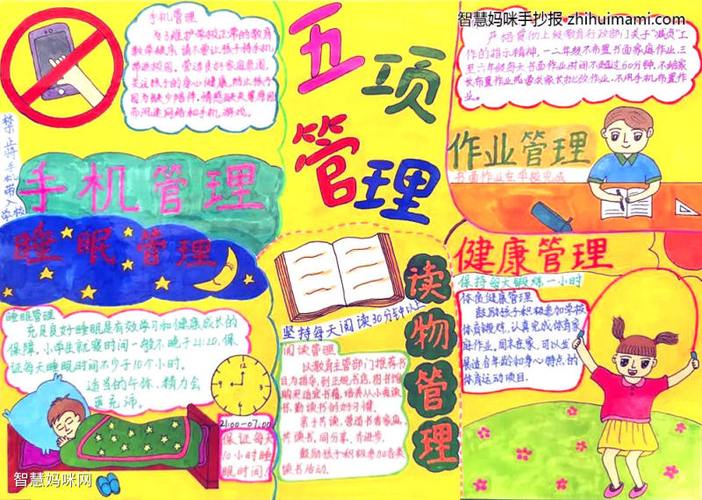 智慧妈咪手抄报 zhihuimami.com
五项
管理
手机管理
为了维护学校正常的教育
教学秩序，请不要让孩子将手机
带进校园。营造良好家庭氛围，
关注孩子的身心健康，防止孩子
因为缺少陪伴、情感缺失等原因
而沉迷网络和手机游戏。
禁止将手机带入学校
手机管理
严格贯彻上级教育行政部门关于“减负”工
作的指示精神，一二年级不布置书面家庭作业，三
至六年级每天书面作业时间不超过60分钟，不给家
长布置作业或要求家长批改作业，不用手机布置作
业。
作业管理
书面作业在学校完成
睡眠管理
睡眠管理
充足良好睡眠是有效学习和健康成长的
保障。小学生就寝时间一般不晚于21:20，保
证每天睡眠时间不少于10个小时。
适当的午休，精力会
更充沛。
21:00-07:00
保证每天
10小时睡
眠时间！
坚持每天阅读30分钟以上
读物管理
阅读管理
以教育主管部门推荐书
目为指导，到正规书店、图书馆
购买适宜书籍，培养从小爱读
书、勤读书的好习惯。
亲子共读，营造书香家庭，
共读书、同分享、齐进步。
鼓励孩子积极参加各类
读书活动。
健康管理
保持每天锻炼一小时
体质健康管理
鼓励孩子积极参加学校
体育锻炼，认真完成体育家
庭作业，周末在家，可以安
排适合年龄和身心特点的
体育运动项目。
智慧妈咪网